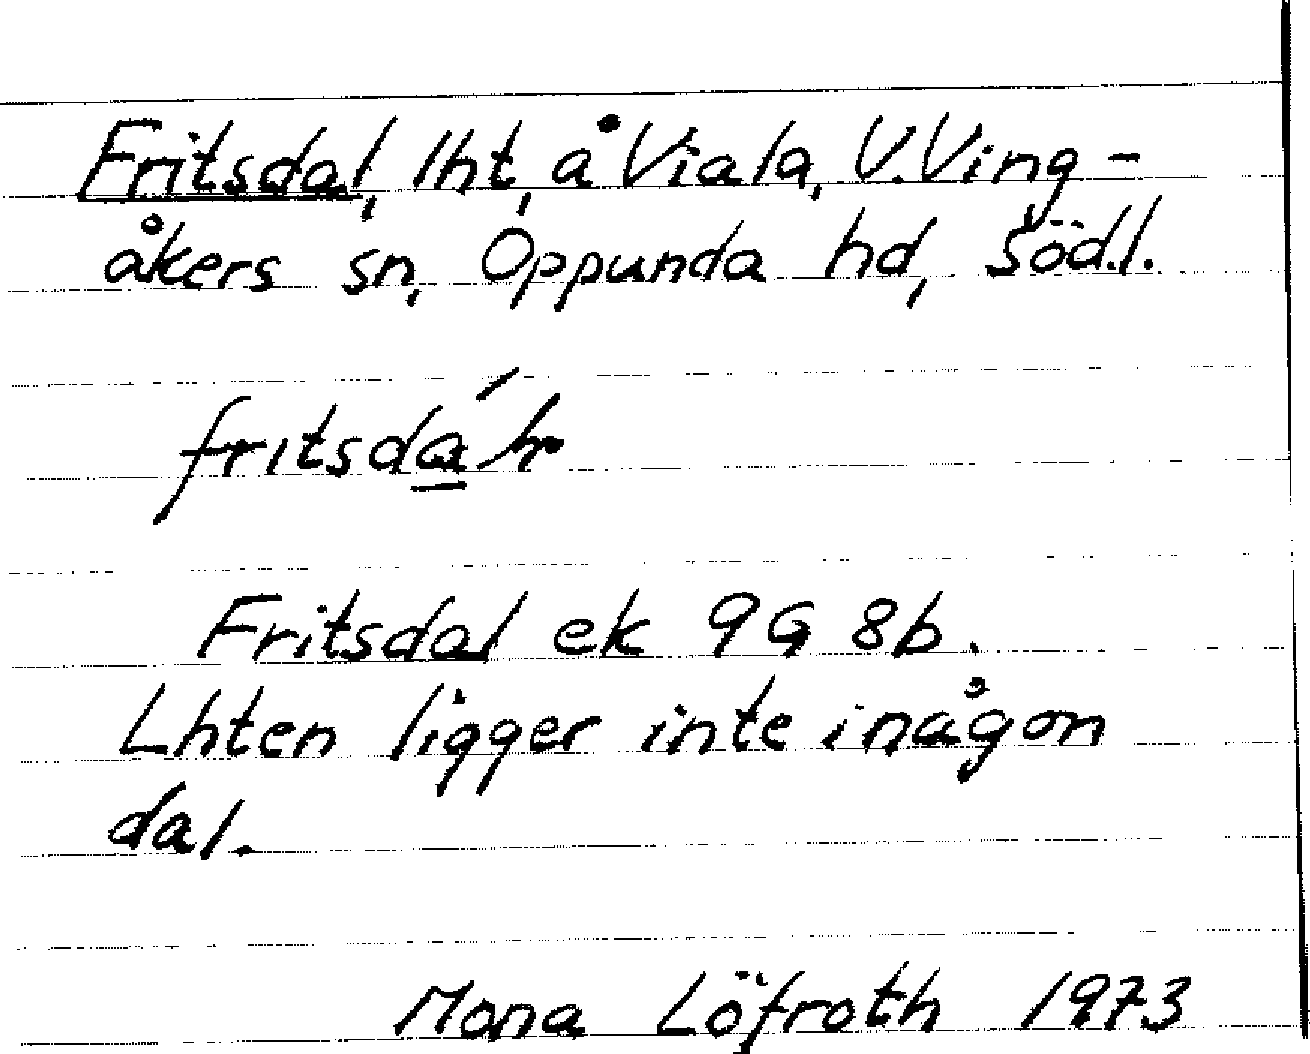 Fritsdal, lht, å Viala, V. Ving-
åkers sn, Oppunda hd, Södl.
Fritsdal ek 9G 8b.
Lhten ligger inte i någon
dal.
Mona Löfroth 1973